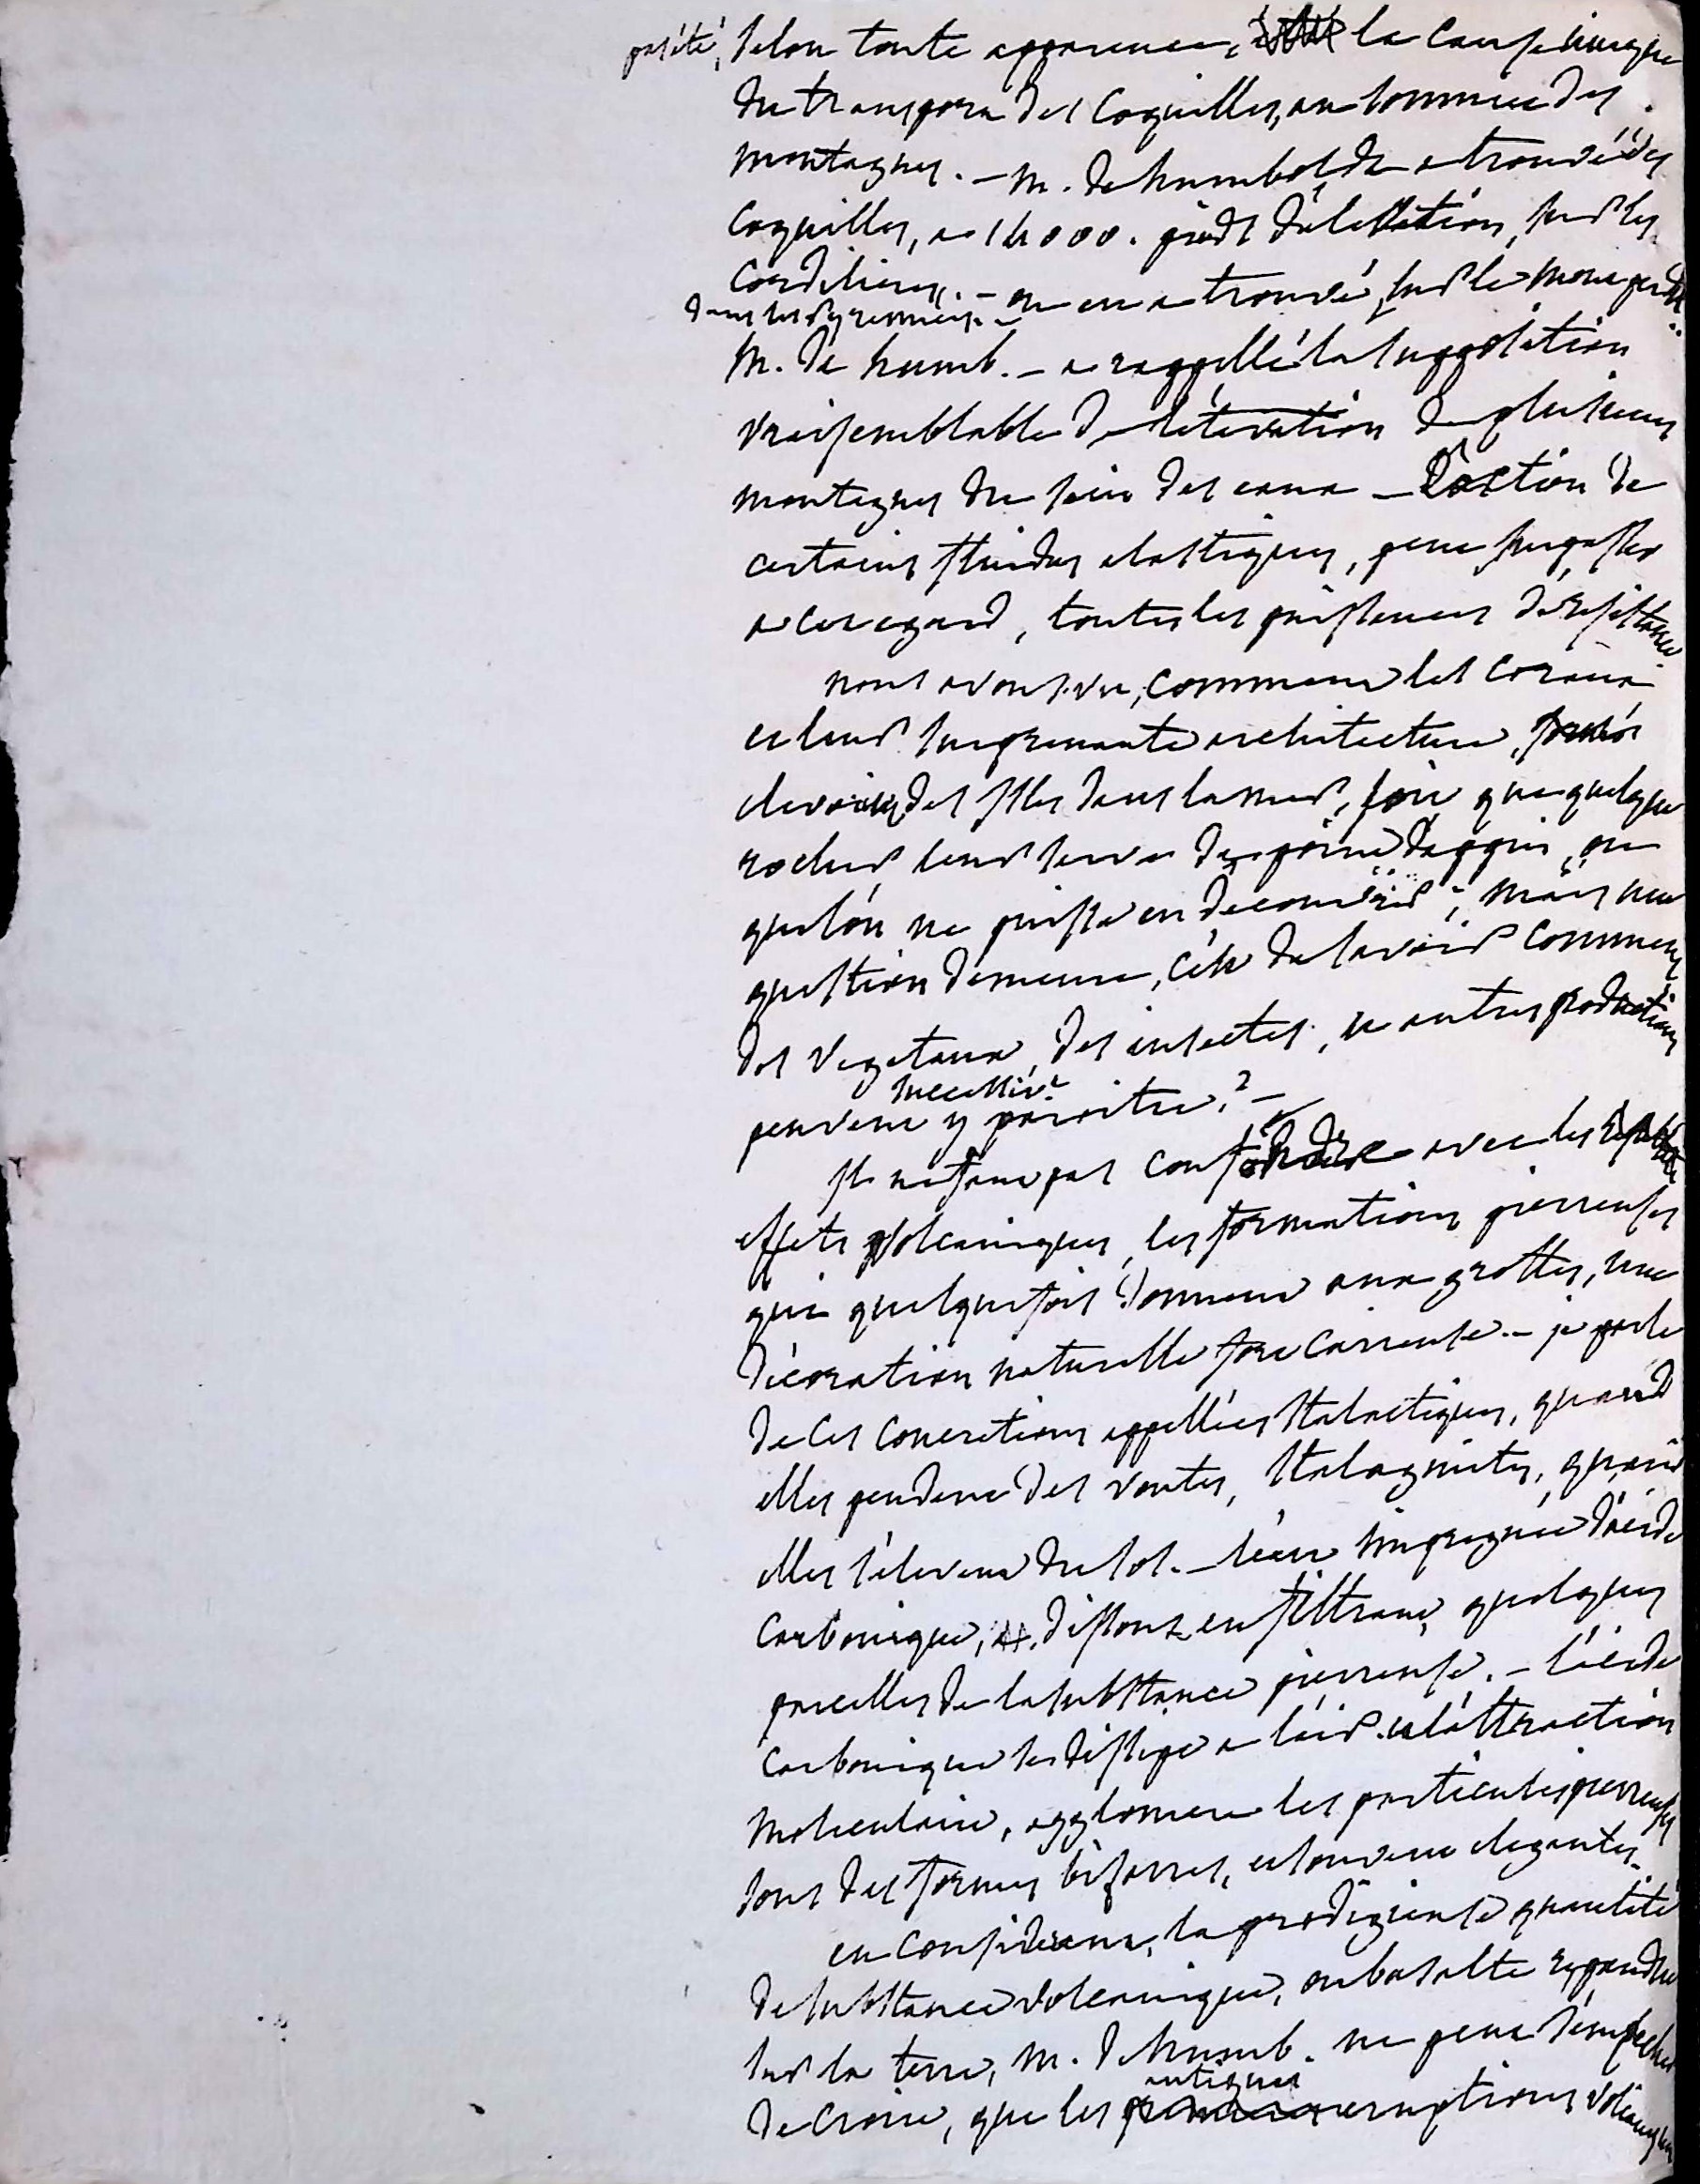 pas été, selon toute apparence, la cause unique
du transport des coquilles, au sommet des
montagnes. - m. de humboldt a trouvé des
coquilles, a 14000. pieds d'elévation, sur les
Cordilieres. - on en a trouvé, sur le mont perdu
dans les Pyrennées. -
M. de humb. - a rappellé la supposition
vraisemblable de l'élévation de plusieurs
montagnes du sein des eaux - L'action de
certains fluides elastiques, peut surpasser
a cet egard, toutes les puissances de resistance.
nous avons vu, comment les coraux
et leur surprenante architecture,
elevoient des isles dans la mer, soit que quelque
rocher, leur serve de point d'appui, ou
que l'on ne puisse en decouvrir ; mais une
question demeure, c'est de savoir comment
des vegetaux, des insectes, et autres productions
peuvent y paroitre successiv.t ? -
Il ne faut pas confondre avec les
effets volcaniques, les formations pierreuses
qui quelquefois donnent aux grottes, une
décoration naturelle fort curieuse. - je parle
de ces concretions appellées Stalactiques, quand
elles pendent des voutes, Stalagmites, quand
elles s'elevent du sol. - l'eau impregnée d'acide
carbonique, dissout en filtrant, quelques
parcelles de la substance pierreuse. - l'acide
carbonique se dissipe a l'air. et l'attraction
moleculaire, agglomere les particules pierreuses
sous des formes bisarres, et souvent elegantes. -
en considerant, la prodigieuse quantité
de substance volcanique, ou basalte repandue
sur la terre, m. de humb. ne peut s'empecher
de croire, que les antiques eruptions volcaniques